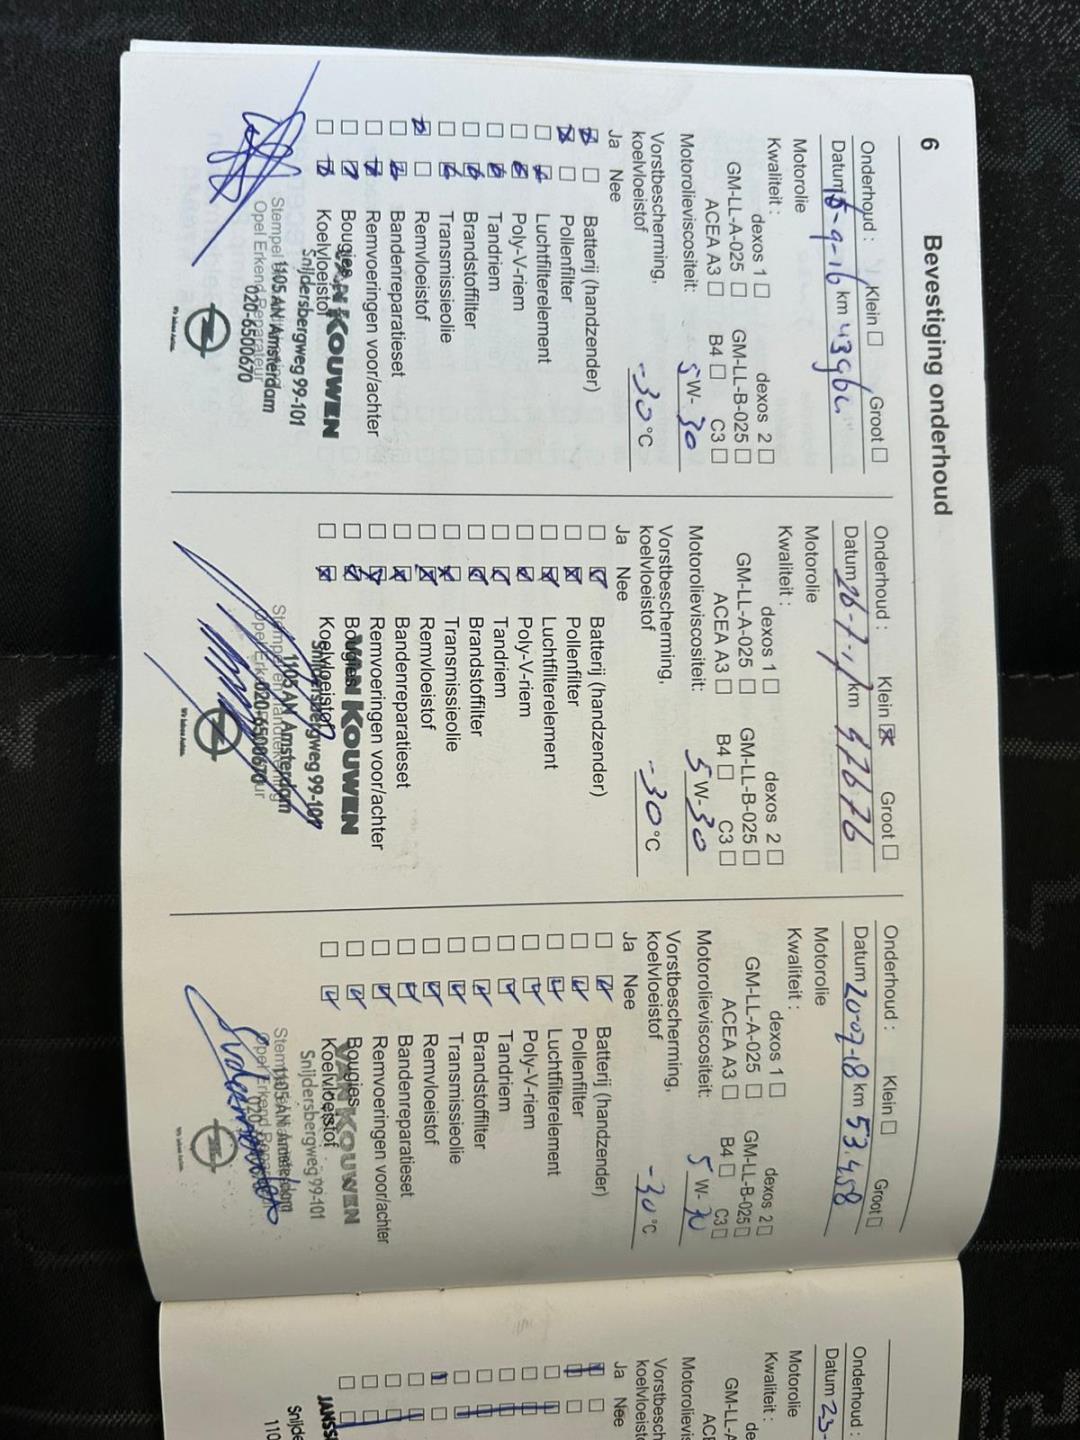 6 Bevestiging onderhoud
Onderhoud : Klein Groot
Datum 15-9-16 km
Motorolie
Kwaliteit :
dexos 1 dexos 2
GM-LL-A-025 GM-LL-B-025
ACEA A3 B4 C3
Motorolieviscositeit: 5 W- 30
Vorstbescherming,
koelvloeistof -30 °C
Ja Nee
Batterij (handzender)
Pollenfilter
Luchtfilterelement
Poly-V-riem
Tandriem
Brandstoffilter
Transmissieolie
Remvloeistof
Bandenreparatieset
Remvoeringen voor/achter
Bougies
Koelvloeistof
VAN KOUWEN
Snijdersbergweg 99-101
1105 AN Amsterdam
020-6500670
Stempel
Opel Erkend Reparateur
Onderhoud : Klein Groot
Datum 26-7-17 km 47676
Motorolie
Kwaliteit :
dexos 1 dexos 2
GM-LL-A-025 GM-LL-B-025
ACEA A3 B4 C3
Motorolieviscositeit: 5 W- 30
Vorstbescherming,
koelvloeistof -30 °C
Ja Nee
Batterij (handzender)
Pollenfilter
Luchtfilterelement
Poly-V-riem
Tandriem
Brandstoffilter
Transmissieolie
Remvloeistof
Bandenreparatieset
Remvoeringen voor/achter
Bougies
Koelvloeistof
VAN KOUWEN
Snijdersbergweg 99-101
1105 AN Amsterdam
020-6500670
Onderhoud : Klein Groot
Datum 20-07-18 km 53.458
Motorolie
Kwaliteit :
dexos 1 dexos 2
GM-LL-A-025 GM-LL-B-025
ACEA A3 B4 C3
Motorolieviscositeit: 5 W- 30
Vorstbescherming,
koelvloeistof -30 °C
Ja Nee
Batterij (handzender)
Pollenfilter
Luchtfilterelement
Poly-V-riem
Tandriem
Brandstoffilter
Transmissieolie
Remvloeistof
Bandenreparatieset
Remvoeringen voor/achter
Bougies
Koelvloeistof
VAN KOUWEN
Snijdersbergweg 99-101
1105 AN Amsterdam
Onderhoud :
Datum 23-
Motorolie
Kwaliteit :
de
GM-LL-A
AC
Motorolievis
Vorstbesch
koelvloeist
Ja Nee
JANSS
Snijde
110